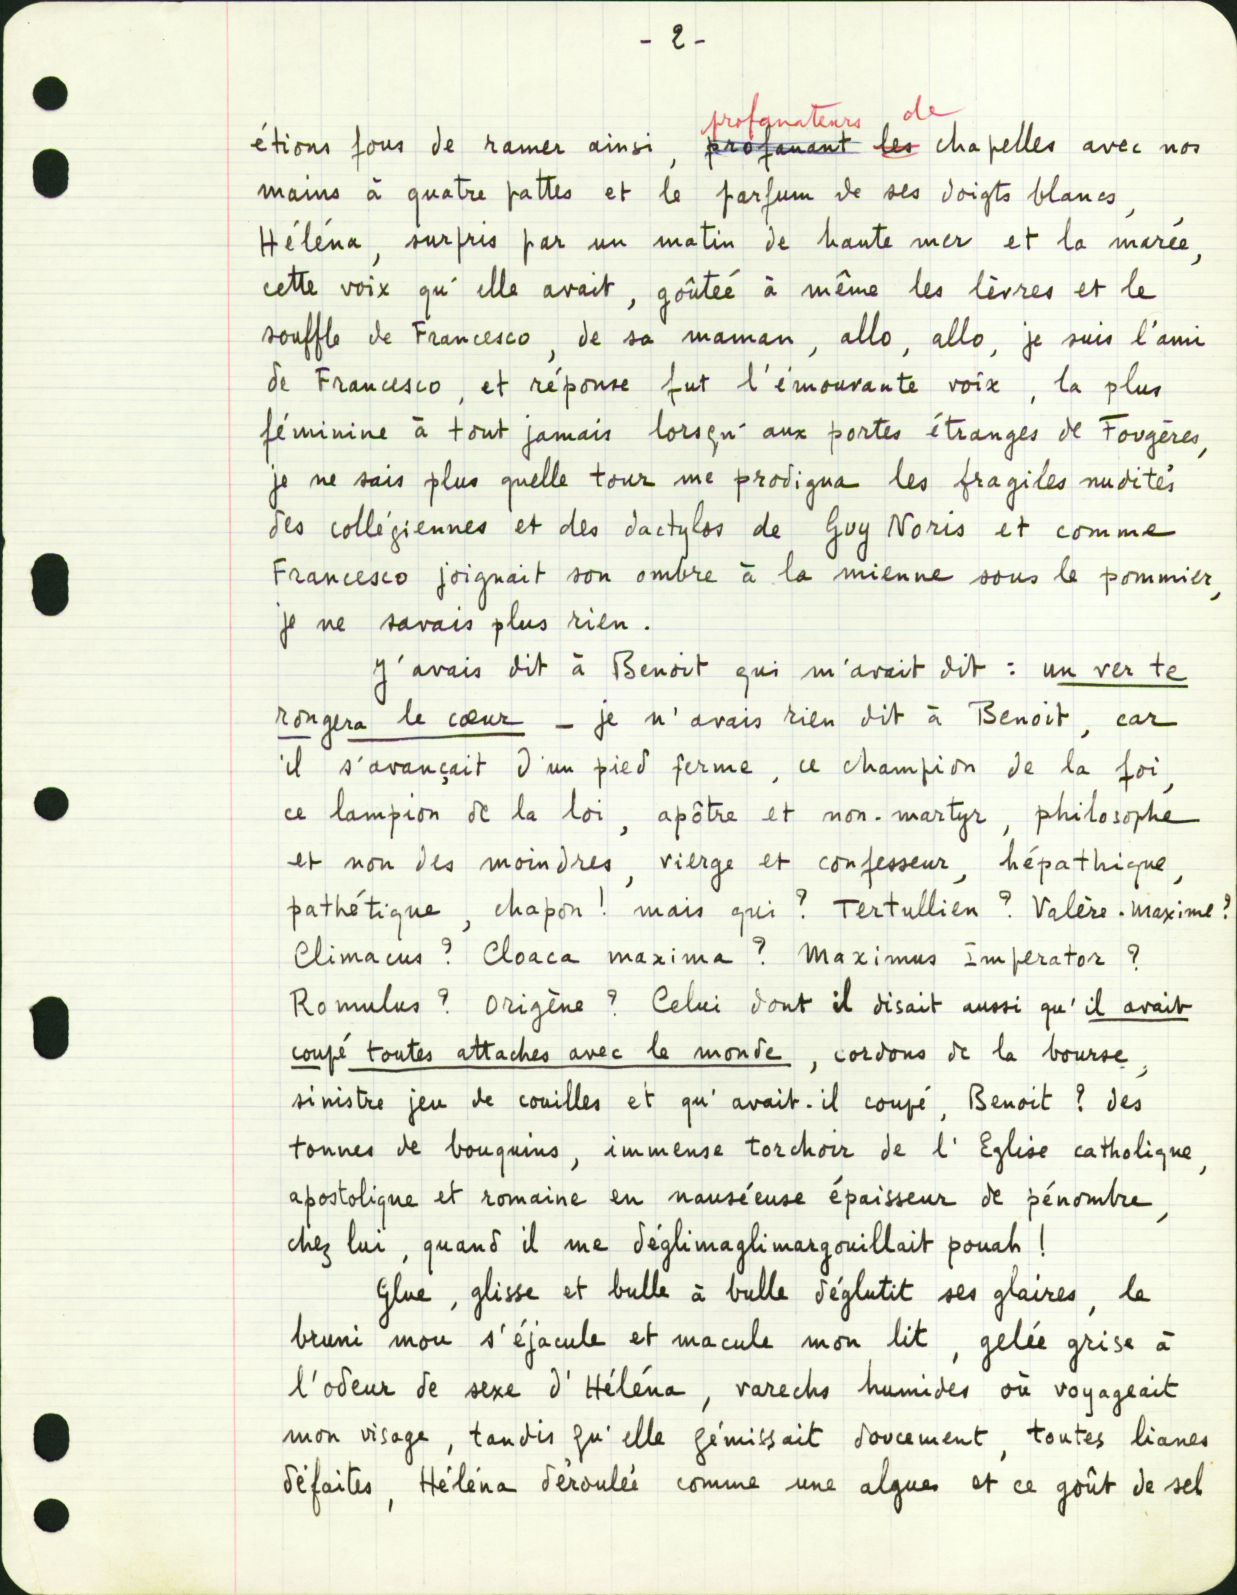 - 2 -
profanateurs de
étions fous de ramer ainsi, profanant les chapelles avec nos
mains à quatre pattes et le parfum de ses doigts blancs,
Héléna, surpris par un matin de haute mer et la marée,
cette voix qu'elle avait, goûteé à même les lèvres et le
souffle de Francesco, de sa maman, allo, allo, je suis l'ami
de Francesco, et réponse fut l'émouvante voix, la plus
féminine à tout jamais lorsqu'aux portes étranges de Fougères,
je ne sais plus quelle tour me prodigua les fragiles nudités
des collégiennes et des dactylos de Guy Noris et comme
Francesco joignait son ombre à la mienne sous le pommier,
je ne savais plus rien.
J'avais dit à Benoit qui m'avait dit : un ver te
rongera le cœur - je n'avais rien dit à Benoit, car
il s'avançait d'un pied ferme, ce champion de la foi,
ce lampion de la loi, apôtre et non-martyr, philosophe
et non des moindres, vierge et confesseur, hépathique,
pathétique, chapon ! mais qui ? Tertullien ? Valère-Maxime ?
Climacus ? Cloaca maxima ? Maximus Imperator ?
Romulus ? Origène ? Celui dont il disait aussi qu'il avait
coupé toutes attaches avec le monde, cordons de la bourse,
sinistre jeu de couilles et qu'avait-il coupé, Benoit ? des
tonnes de bouquins, immense torchoir de l'Eglise catholique,
apostolique et romaine en nauséeuse épaisseur de pénombre,
chez lui, quand il me déglimaglimargouillait pouah !
Glue, glisse et bulle à bulle déglutit ses glaires, le
bruni mou s'éjacule et macule mon lit, gelée grise à
l'odeur de sexe d'Héléna, varechs humides où voyageait
mon visage, tandis qu'elle gémissait doucement, toutes lianes
défaites, Héléna dérouleé comme une algue et ce goût de sel